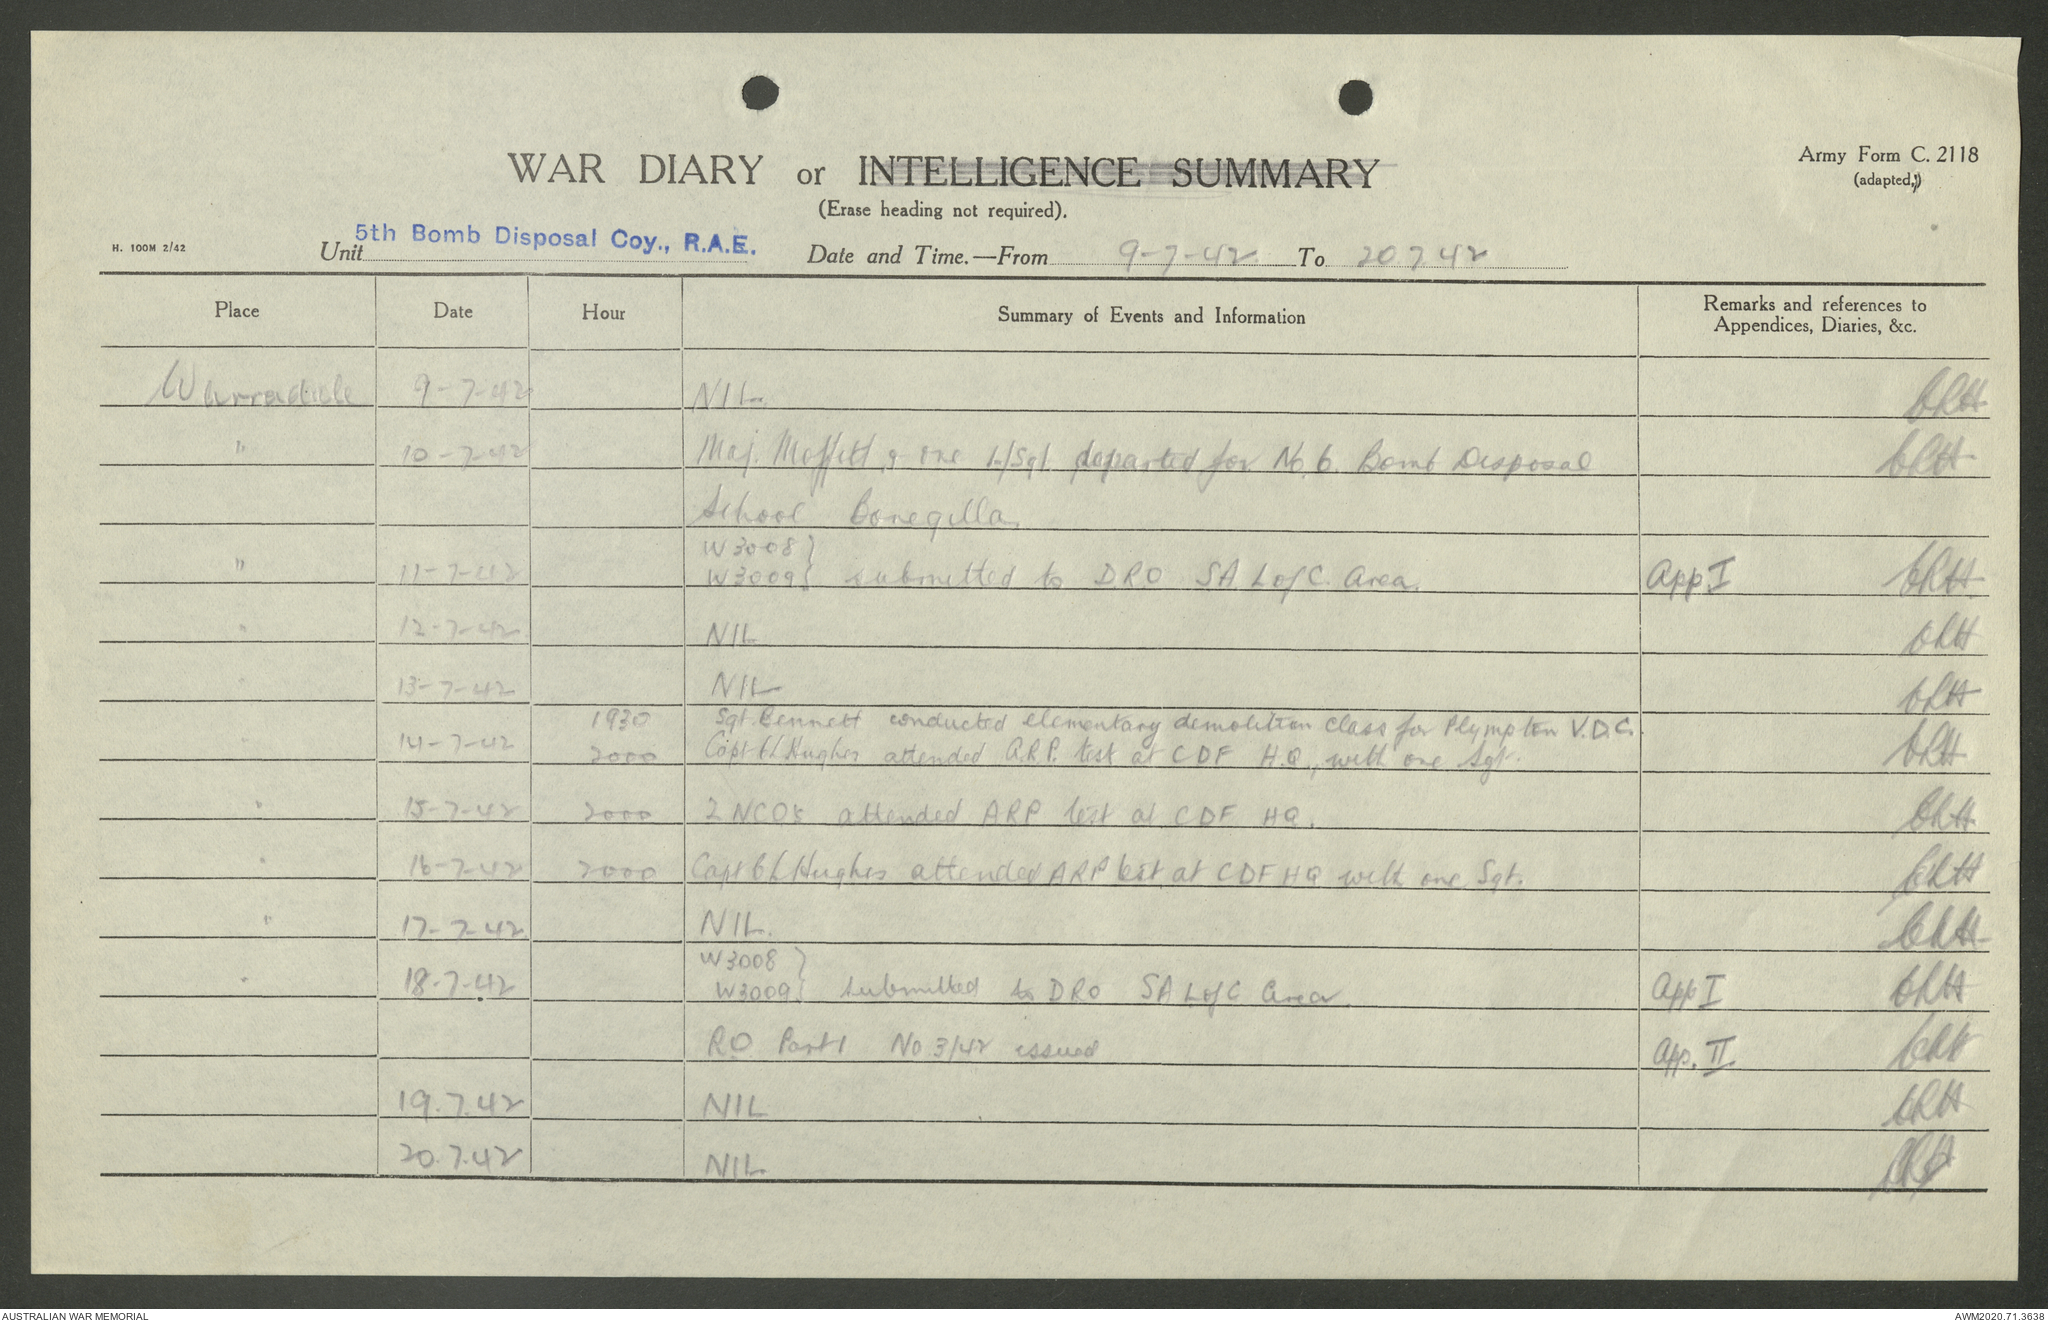 WAR DIARY or INTELLIGENCE SUMMARY
Army Form C. 2118
(adapted,)
(Erase heading not required).
H. 100M 2/42
Unit 5th Bomb Disposal Coy., R.A.E. Date and Time.—From 9-7-42 To 20 7 42
Place Date Hour Summary of Events and Information Remarks and references to Appendices, Diaries, &c.
9-7-42 NIL.
" 10-7-42 Maj. Moffett & one L/Sgt departed for No. 6. Bomb Disposal
School Bonegilla.
W3008 }
" 11-7-42 W3009 } submitted to DRO SA L of C. Area. App. I
" 12-7-42 NIL
" 13-7-42 NIL
1930 Sgt. Bennett conducted elementary demolition class for Plympton V.D.C.
" 14-7-42 2000 Capt Hughes attended A.R.P. test at CDF H.Q., with one Sgt.
" 15-7-42 2000 2 NCO's attended ARP test at CDF HQ.
" 16-7-42 2000 Capt Hughes attended ARP test at CDF HQ with one Sgt.
" 17-7-42 NIL.
W3008 }
" 18-7-42 W3009 } submitted to DRO SA L of C Area. App I
RO Part 1 No 3/42 issued App. II
19.7.42 NIL
20.7.42 NIL
AUSTRALIAN WAR MEMORIAL
AWM2020.71.3638